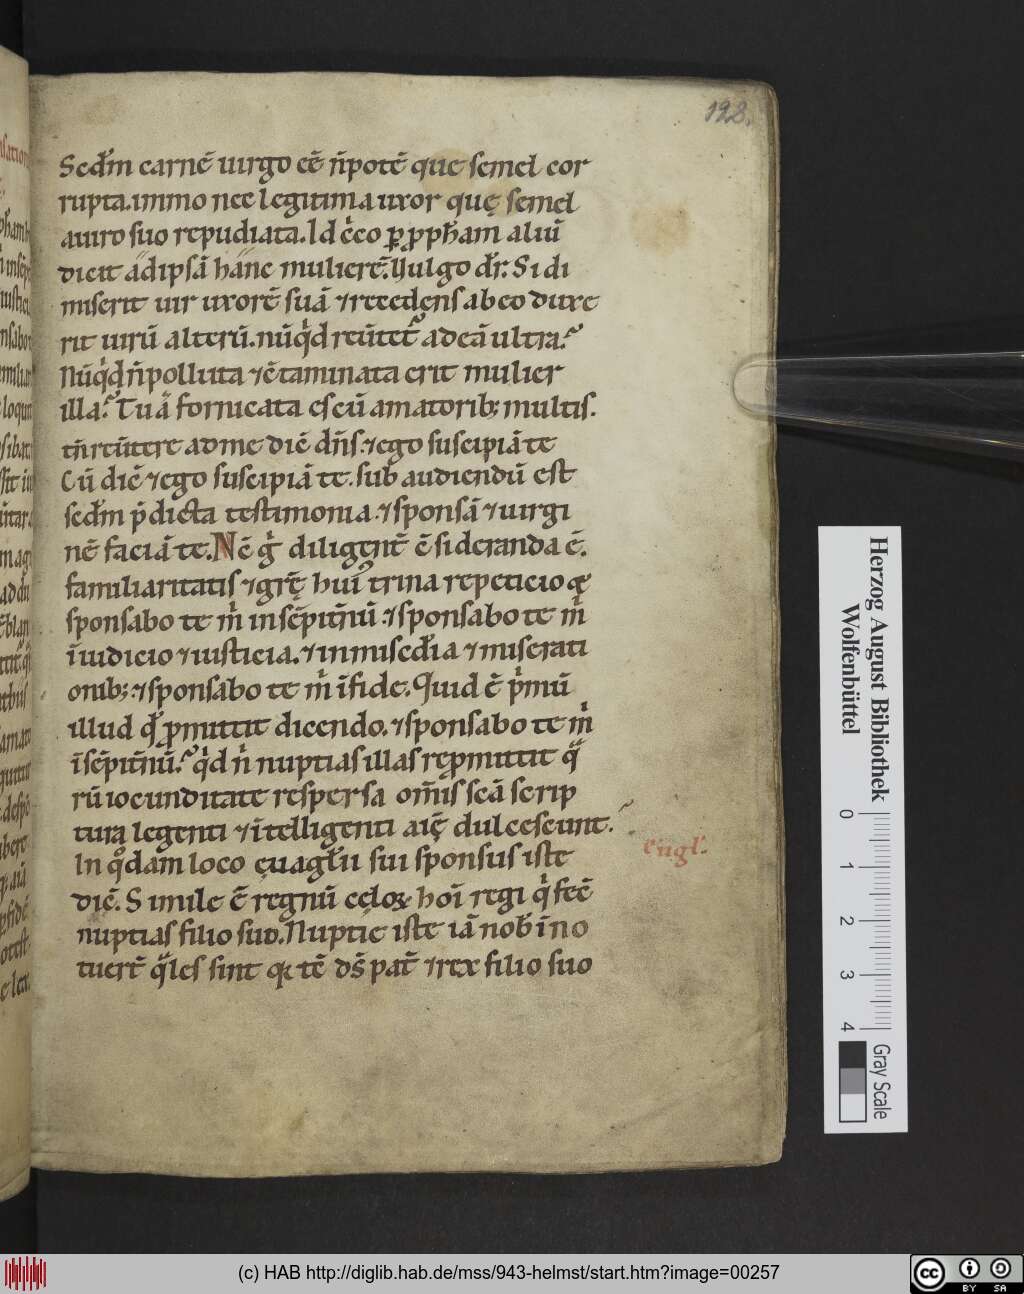 128.
Scdm carnē uirgo eē n̄potē que semel cor
rupta. immo nec legitima uxor quę semel
a uiro suo repudiata. Id ē eo ꝑ ꝓpham aliū
dicit ad ipsā hanc mulierē. Uulgo dr̄. Si di
miserit uir uxorē suā ⁊ recedens ab eo duxe
rit uirū alterū. nūqd reūtet ad eā ultra?
Nūqd n̄ polluta ⁊ ɔtaminata erit mulier
illa? Tu aū fornicata es cū amatorib; multis.
tn̄ reūtere ad me dic̄ dn̄s. ⁊ ego suscipiā te
Cū dic̄ ⁊ ego suscipiā te. subaudiendū est
scdm p̄dicta testimonia. ⁊ sponsā ⁊ uirgi
nē faciā te. Nē g diligent̄ ɔsideranda ē.
familiaritatis ⁊ grę̄ hui trina repeticio
sponsabo te m in sēpitnū. ⁊ sponsabo te m
ī iudicio ⁊ iusticia. ⁊ in miscdia ⁊ miserati
onib; ⁊ sponsabo te m ī fide. Quid ē pmū
illud qd ꝓmittit dicendo. ⁊ sponsabo te m
ī sēpitnū? qd n nuptias illas reꝓmittit q
rū iocunditate respersa om̄is scā scrip
tura legenti ⁊ ītelligenti aię dulcescunt.
In qdam loco ęuaglii sui sponsus iste
euglᷓ.
dic̄. Simile ē regnū cęloꝝ hoī regi q fec̄
nuptias filio suo. Nuptie iste iā nob īno
tuert qles sint q tē ds pat ⁊ rex filio suo
Herzog August Bibliothek
Wolfenbüttel
0 1 2 3 4
Gray Scale
(c) HAB http://diglib.hab.de/mss/943-helmst/start.htm?image=00257
cc BY SA